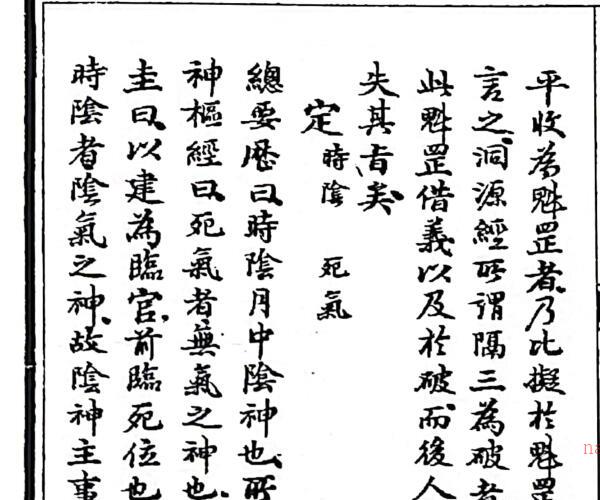 平收為魁罡者乃比擬於魁罡
言之洞源經所謂隔三為破者
此魁罡借義以及於破而後人
失其旨矣
定 時陰 死氣
總要厯曰時陰月中陰神也所
神樞經曰死氣者無氣之神也
圭曰以建為臨官前臨死位也
時陰者陰氣之神故陰神主事
na